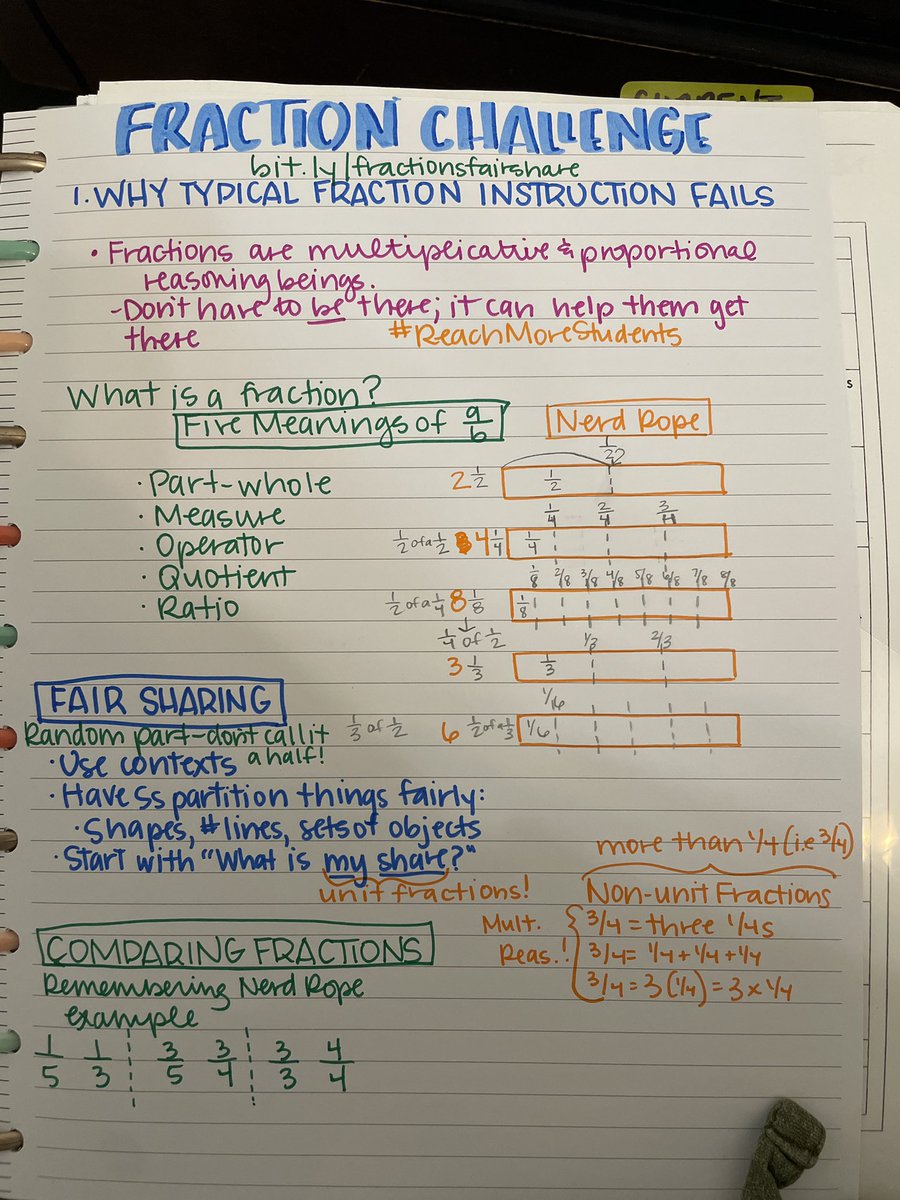 FRACTION CHALLENGE
bit.ly/fractionsfairshare
1. WHY TYPICAL FRACTION INSTRUCTION FAILS
• Fractions are multiplicative & proportional
reasoning beings.
-Don't have to be there; it can help them get
there
#ReachMoreStudents
What is a fraction?
Five Meanings of a/b
· Part-whole
· Measure
· Operator
· Quotient
· Ratio
Nerd Rope
1/2
2 1/2
1/2
1/4 2/4 3/4
1/2 of a 1/2 4 1/4
1/4
1/8 2/8 3/8 4/8 5/8 6/8 7/8 8/8
1/2 of a 1/4 8 1/8
1/8
1/4 of 1/2
1/3 2/3
3 1/3
1/3
1/6
1/3 of 1/2 6 1/2 of a 1/3
1/6
FAIR SHARING
Random part-don't call it
a half!
· Use contexts
· Have Ss partition things fairly:
· Shapes, # lines, sets of objects
· Start with "What is my share?"
unit fractions!
more than 1/4 (i.e 3/4)
Non-unit Fractions
Mult.
Reas.!
3/4 = three 1/4s
3/4 = 1/4 + 1/4 + 1/4
3/4 = 3(1/4) = 3 x 1/4
COMPARING FRACTIONS
Remembering Nerd Rope
example
1/5 1/3 3/5 3/4 3/3 4/4